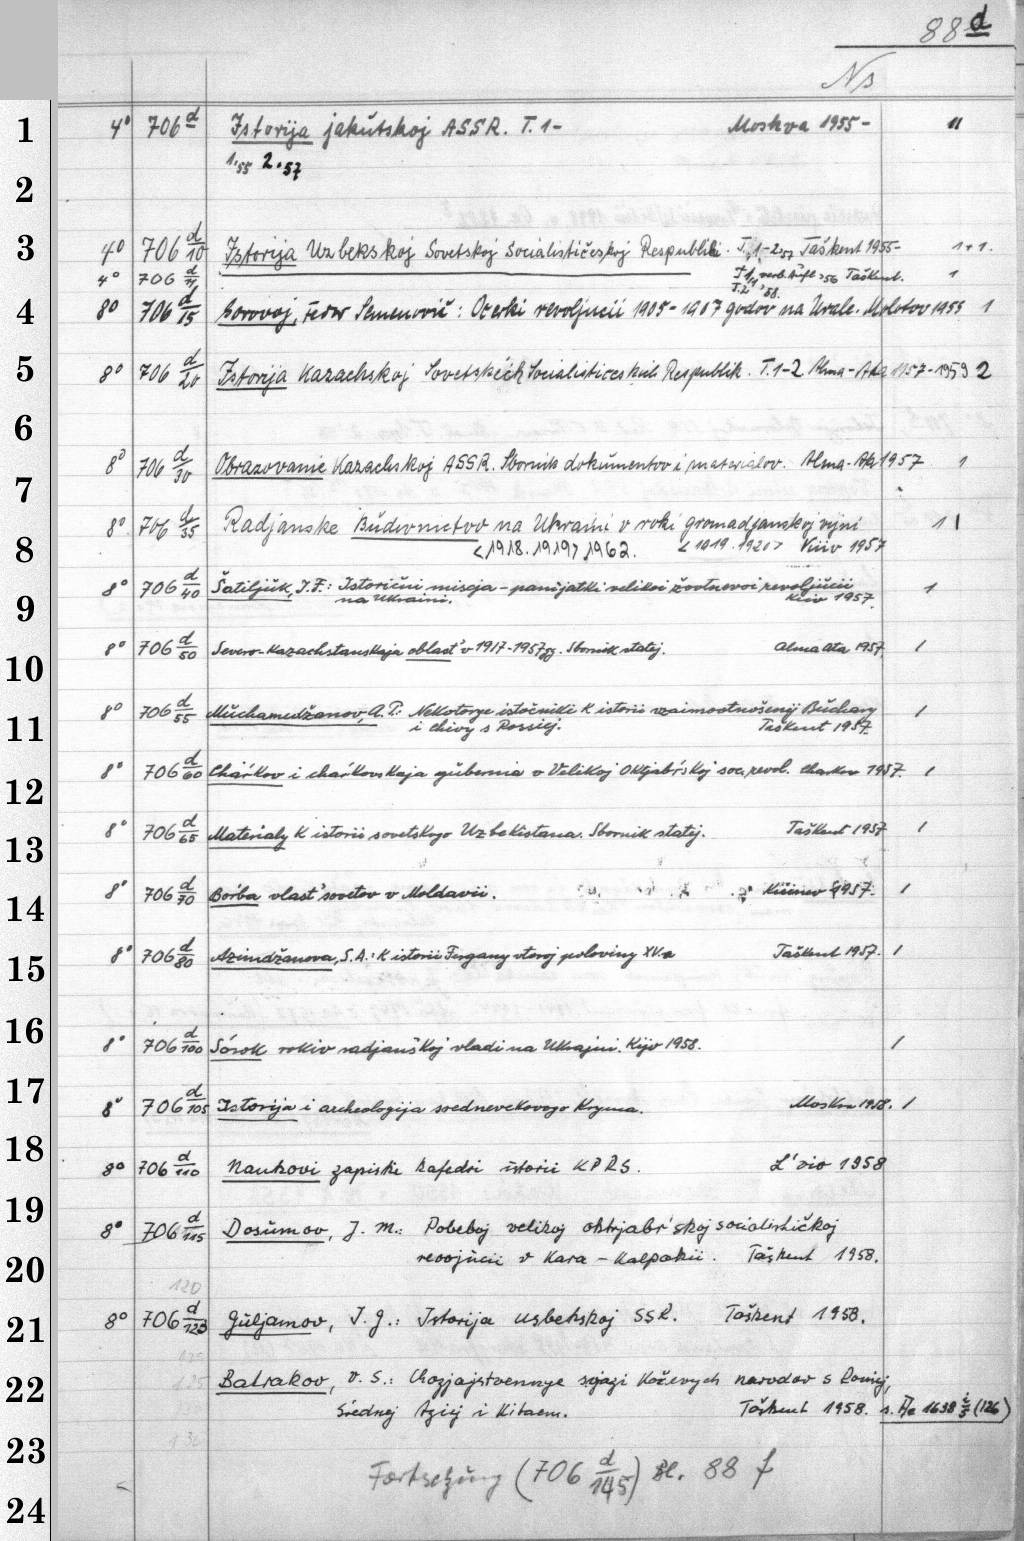 88 d
Ns
1 4° 706 d Istorija jakutskoj ASSR. T. 1- Moskva 1955- 11
2 1.55 2.57
3 4° 706 d/10 Istorija Uzbekskoj Sovetskoj Socialističeskoj Respubliki. T. 1-2 57 Taškent 1955- 1+1.
4° 706 d/11 T. 1,1 verb. Aufl. 56 Taškent. 1
T. 2 '58.
4 8° 706 d/15 Gorovoj, Fedor Semenovič: Očerki revoljucii 1905-1907 godov na Urale. Molotov 1955 1
5 8° 706 d/20 Istorija Kazachskoj Sovetskich Socialističeskich Respublik. T. 1-2 Alma-Ata 1957-1959 2
6
7 8° 706 d/30 Obrazovanie Kazachskoj ASSR. Sbornik dokumentov i materialov. Alma-Ata 1957 1
8° 706 d/35 Radjanske Budivnictvo na Ukraini v roki gromadjanskoj vijni 1 1
8 <1918.1919> 1962. <1919.1920> Kiiv 1957
8° 706 d/40 Šatiljuk, I. F.: Istorični miscja - pamjatki velikoi žovtnevoi revoljucii 1
9 na Ukraini. Kiiv 1957.
10 8° 706 d/50 Severo-Kazachstanskaja oblast' v 1917-1957 gg. Sbornik statej. Alma Ata 1957. 1
8° 706 d/55 Muchamedžanov, A. P.: Nekotorye istočniki k istorii vzaimootnošenij Buchary 1
11 i Chivy s Rossiej. Taškent 1957.
12 8° 706 d/60 Char'kov i char'kovskaja gubernia v Velikoj Oktjabr'skoj soc. revol. Charkov 1957. 1
13 8° 706 d/65 Materialy k istorii sovetskogo Uzbekistana. Sbornik statej. Taškent 1957 1
14 8° 706 d/70 Bor'ba vlast' sovetov v Moldavii. Kišinev 1957. 1
15 8° 706 d/80 Azimdžanova, S. A.: K istorii Fergany vtoroj poloviny XV.v Taškent 1957. 1
16 8° 706 d/100 Sorok rokiv radjans'koj vladi na Ukrajni. Kijv 1958. 1
17 8° 706 d/105 Istorija i archeologija srednevekovogo Kryma. Moskva 1958. 1
18 8° 706 d/110 Naukovi zapiski kafedri istorii KPRS. L'viv 1958
19 8° 706 d/115 Dosumov, J. M.: Pobeboj velikoj oktrjabr'skoj socialističkoj
20 revojucii v Kara-Kalpakii. Taškent 1958.
120
21 8° 706 d/123 Guljamov, J. G.: Istorija usbekskoj SSR. Taškent 1958.
125
22 Batrakov, V. S.: Chozjajstvennye svjazi Koževych narodov s Rossiej,
Srednej Aziej i Kitaem. Taškent 1958. s. 1638 i/5 (126)
23 130
Fortsetzung (706 d/145) Bl. 88 f
24